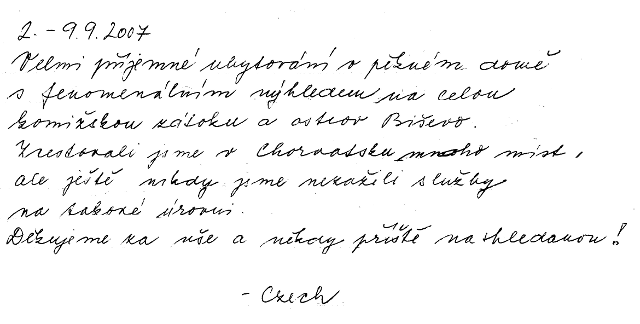 2. - 9.9.2007
Velmi příjemné ubytování v pěkném domě
s fenomenálním výhledem na celou
komižskou zátoku a ostrov Biševo.
Zcestovali jsme v Chorvatsku mnoho míst,
ale ještě nikdy jsme nezažili služby
na takové úrovni.
Děkujeme za vše a někdy příště na shledanou!
- Czech